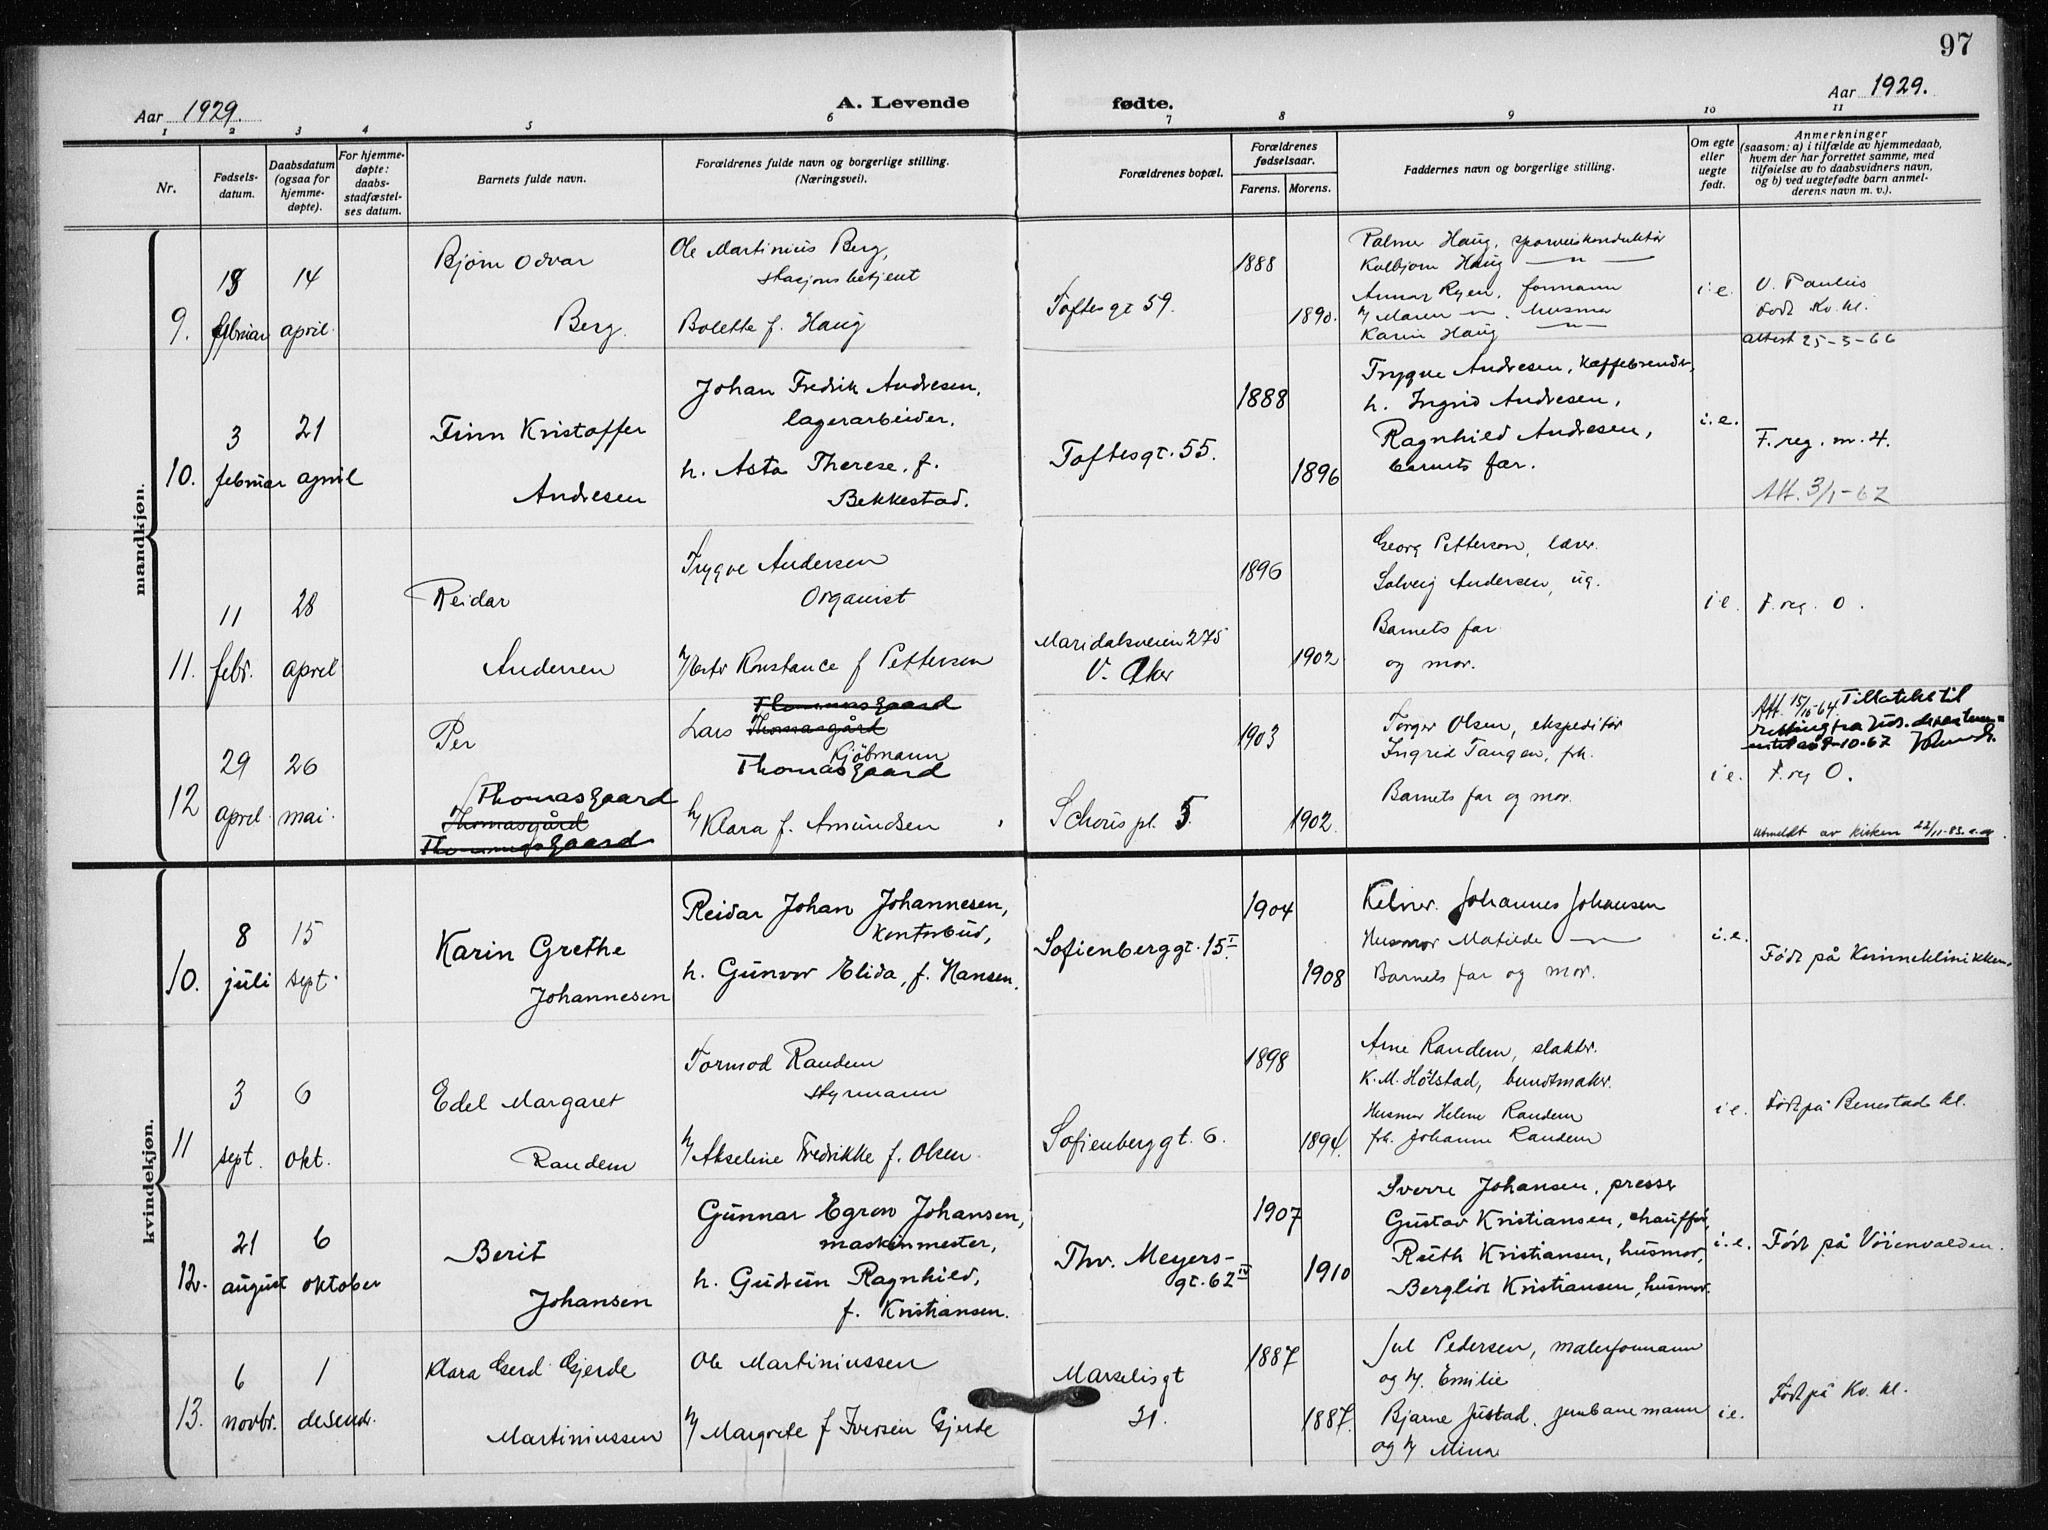 97
Aar 1929.
A. Levende fødte.
Aar 1929.
1 2 3 4 5 6 7 8 9 10 11
Nr.
Fødsels-
datum.
Daabsdatum
(ogsaa for
hjemme-
døpte).
For hjemme-
døpte:
daabs-
stadfæstel-
ses datum.
Barnets fulde navn.
Forældrenes fulde navn og borgerlige stilling.
(Næringsvei).
Forældrenes bopæl.
Forældrenes
fødselsaar.
Farens. Morens.
Faddernes navn og borgerlige stilling.
Om egte
eller
uegte
født.
Anmerkninger
(saasom: a) i tilfælde av hjemmedaab,
hvem der har forrettet samme, med
tilføielse av to daabsvidners navn,
og b) ved uegtefødte barn anmel-
derens navn m. v.).
mandkjøn.
9.
februar
14
april
Bjørn Odvar
Berg.
Ole Martinius Berg,
stasjonsbetjent
Bolette f. Haug
Toftesgt 59.
1888
1890.
Palmer Haug, sporveiskonduktør
Kolbjørn Haug — " —
Annar Ryen, formann
h/ Maren — " — husmor
Karin Haug — " —
i.e.
V. Paulus
Født Kv. kl.
attest 25-5-66
10.
3
februar
21
april
Finn Kristoffer
Andresen
Johan Fredrik Andresen,
lagerarbeider.
h. Asta Therese, f.
Bekkestad.
Toftesgt. 55.
1888
1896
Trygve Andresen, kaffebrender,
h. Ingrid Andresen,
Ragnhild Andresen,
barnets far.
i.e.
F. reg. m. 4.
Att. 3/1-62
11.
11
febr.
28
april
Reidar
Andersen
Trygve Andersen
Organist
h/ Ester Konstance f Pettersen
Maridalsveien 275
V. Aker
1896
1902
Georg Petterson, lærer.
Solveig Andersen, ug.
Barnets far
og mor.
i.e.
F. reg. O.
12
29
april
26
mai.
Per
Thomasgaard
Thomasgård
Lars Thomasgård
Kjøbmann
Thomasgaard
h/ Klara f. Amundsen
Schous pl. 5.
1903
1902.
Torger Olsen, ekspeditør
Ingrid Tangen, frk.
Barnets far og mor.
i.e.
Att. 15/10-64. Tillatelse til
retting fra
F. reg O.
Utmeldt av kirken 22/11-83.
kvindekjøn.
10.
8
juli
15
sept.
Karin Grethe
Johannesen
Reidar Johan Johannesen,
kontorbud,
h. Gunvor Elida, f. Hansen.
Sofienberggt. 15 I
1904
1908
Kelner. Johannes Johansen
Husmor Matilde — " —
Barnets far og mor.
i.e.
Født på Kvinneklinikken.
11
3
sept.
6
okt.
Edel Margaret
Randem
Tormod Randem
styrmann
h/ Akseline Fredrikke f. Olsen
Sofienberggt. 6.
1898
1894.
Arne Randem, slakter.
K. M. Hølstad, buntmaker.
Husmor Helene Randem
frk. Johanne Randem
i.e.
Født på Benestads kl.
12.
21
august
6
oktober
Berit
Johansen
Gunnar Egron Johansen,
maskinmester,
h. Gudrun Ragnhild,
f. Kristiansen.
Thv. Meyers-
gt. 62 IV
1907
1910
Sverre Johansen, presser
Gustav Kristiansen, chauffør,
Ruth Kristiansen, husmor,
Bergliot Kristiansen, husmor.
i.e.
Født på Vøienvolden.
13.
6
novbr.
1
desembr.
Klara Gerd Gjerde
Martiniussen
Ole Martiniussen
h/ Margrete f Iversen Gjerde
Marselisgt
31.
1887
1887.
Jul Pedersen, malerformann
og h/. Emilie
Bjarne Justad, jernbanemann
og h/ Minna
i.e.
Født på Kv. kl.